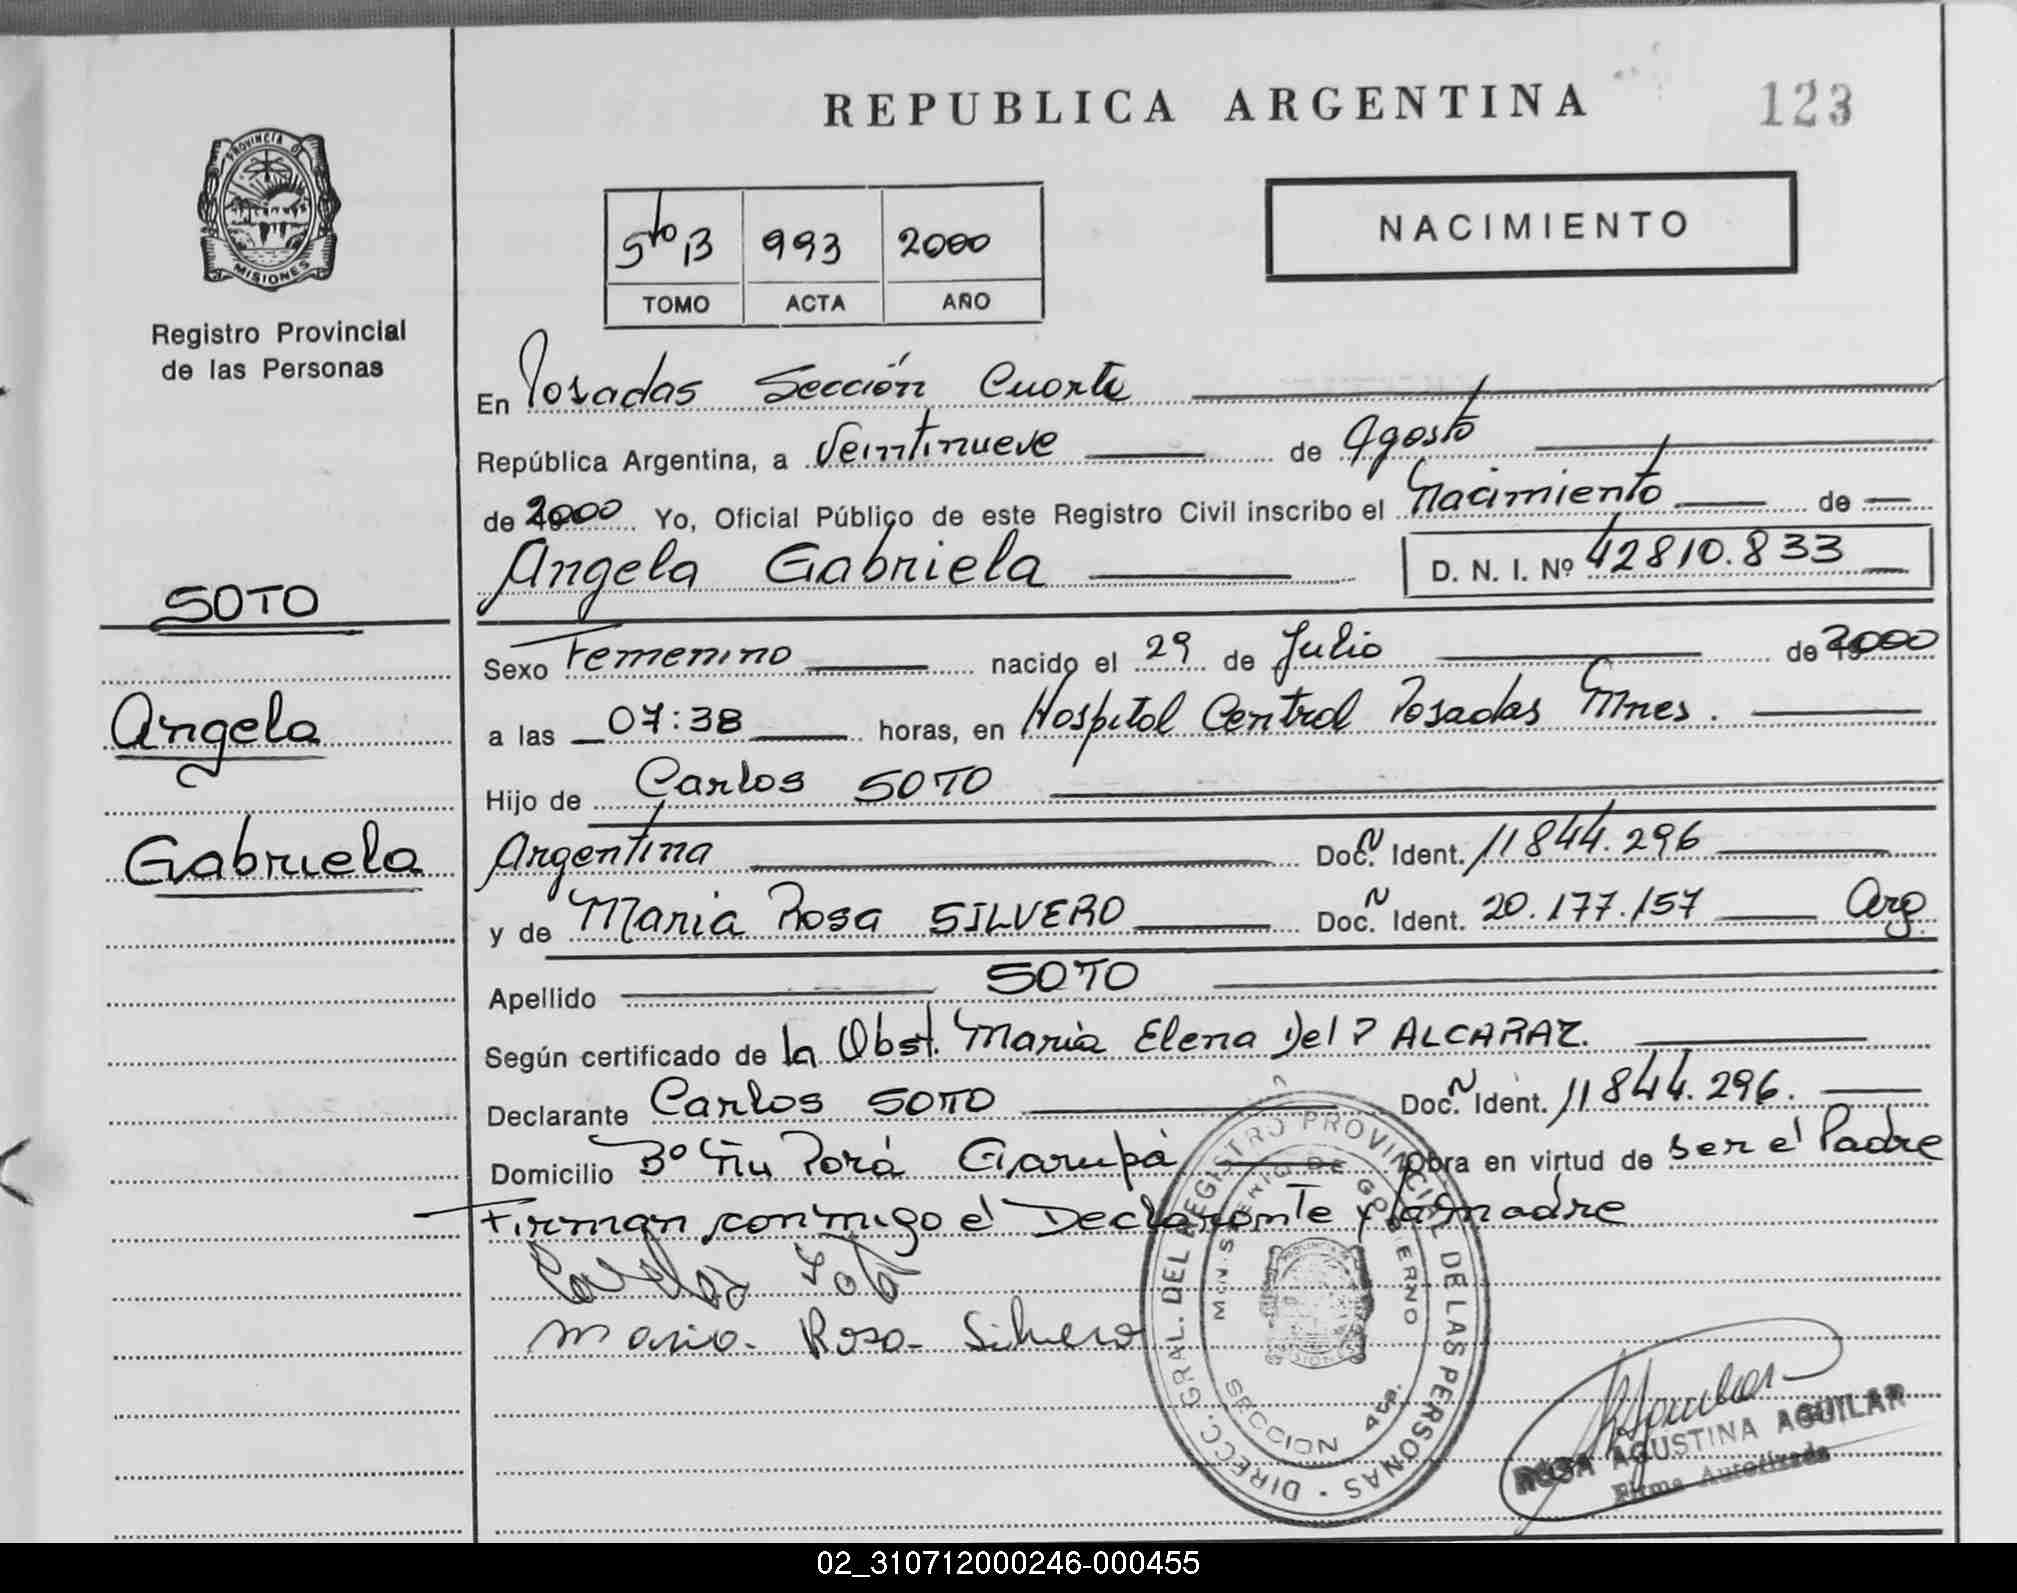 REPUBLICA ARGENTINA
123
NACIMIENTO
5to B 993 2000
TOMO ACTA AÑO
PROVINCIA DE
MISIONES
Registro Provincial
de las Personas
SOTO
Angela
Gabriela
En Posadas Sección Cuarta
República Argentina, a Veintinueve de Agosto
de 2000 Yo, Oficial Público de este Registro Civil inscribo el Nacimiento de
Angela Gabriela D. N. I. Nº 42810.833
Sexo Femenino nacido el 29 de Julio de 2000
a las 07:38 horas, en Hospital Central Posadas Mnes.
Hijo de Carlos SOTO
Argentina Doc. Ident. 11844.296
y de Maria Rosa SILVERO Doc. Ident. 20.177.157 Arg.
Apellido SOTO
Según certificado de la Obst. Maria Elena Del P ALCARAZ.
Declarante Carlos SOTO Doc. Ident. 11844.296.
Domicilio Bº Ñu Porá Garupá Obra en virtud de ser el Padre
Firman conmigo el Declarante y la madre
Carlos Soto
Maria Rosa Silvero
DIRECC. GRAL. DEL REGISTRO PROVINCIAL DE LAS PERSONAS
MINISTERIO DE GOBIERNO
SECCION 4ta.
ROSA AGUSTINA AGUILAR
Firma Autorizada
02_310712000246-000455